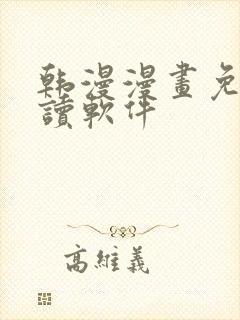 韩漫漫畫免
讀軟件
高維義